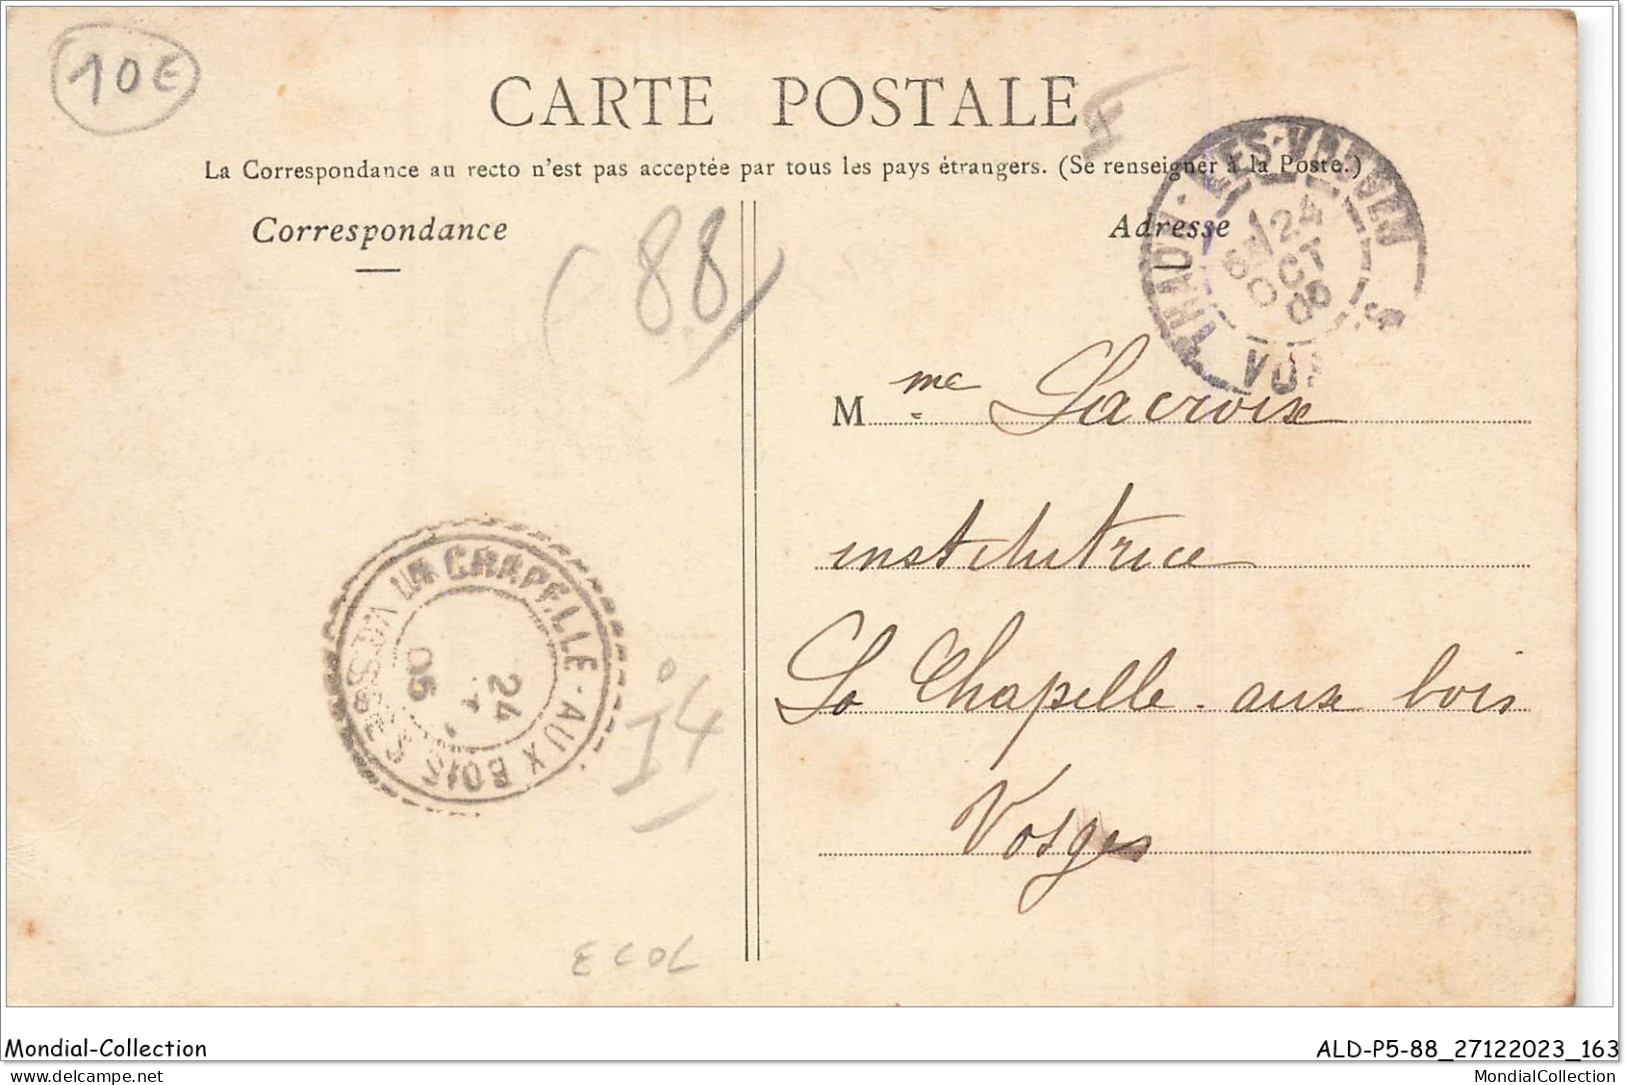 10€
CARTE POSTALE
La Correspondance au recto n'est pas acceptée par tous les pays étrangers. (Se renseigner à la Poste.)
Correspondance
Adresse
(88)
THAON-LES-VOSGES
24
OCT
05
Mme Lacroix
institutrice
La Chapelle-aux bois
Vosges
LA CHAPELLE-AUX BOIS
24
05
14
Mondial-Collection
ALD-P5-88_27122023_163
delcampe.net
MondialCollection